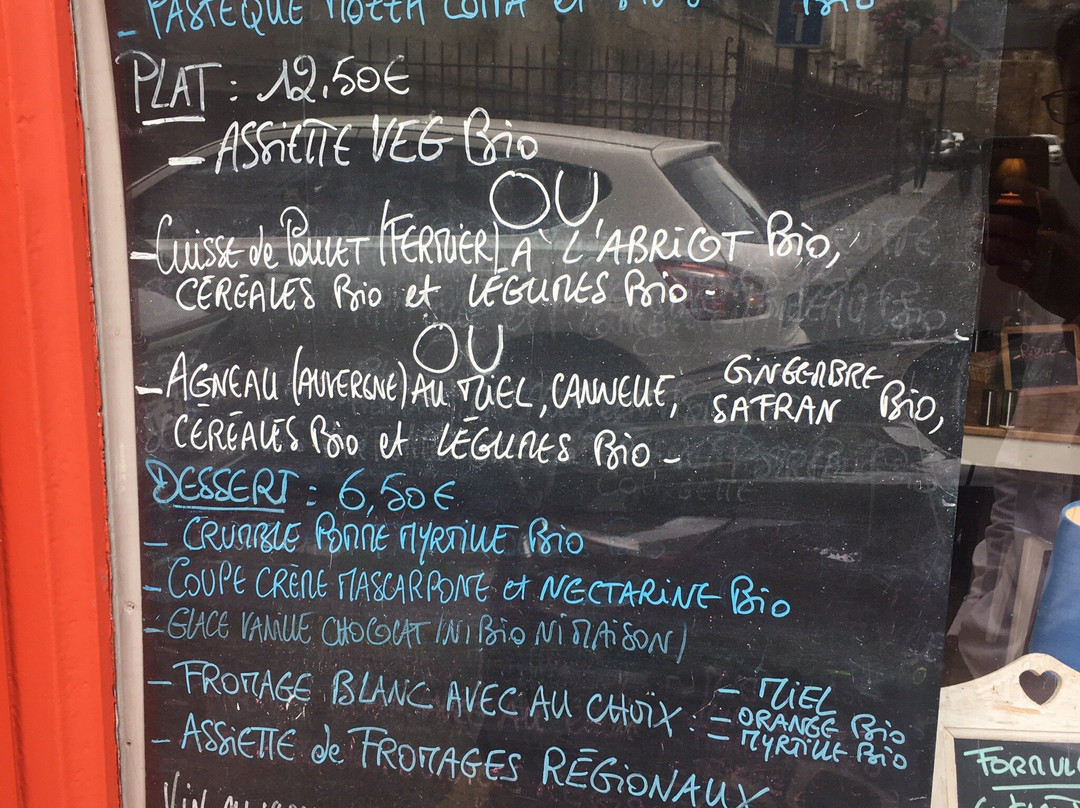 - PASTÈQUE MOZZA COPPA et
PLAT : 12,50€
- ASSIETTE VEG Bio
OU
- Cuisse de Poulet (FERMIER) À L'ABRICOT Bio,
CÉRÉALES Bio et LÉGUMES Bio -
OU
- AGNEAU (AUVERGNE) AU MIEL, CANNELLE, GINGEMBRE
SAFRAN Bio,
CÉRÉALES Bio et LÉGUMES Bio -
DESSERT : 6,50€
- CRUMBLE POMME MYRTILLE Bio
- COUPE CRÈME MASCARPONE et NECTARINE Bio
- GLACE VANILLE CHOCOLAT (NI Bio NI MAISON)
- FROMAGE BLANC AVEC AU CHOIX : - MIEL
- ORANGE Bio
- MYRTILLE Bio
- ASSIETTE de FROMAGES RÉGIONAUX
Vin
FORMULE